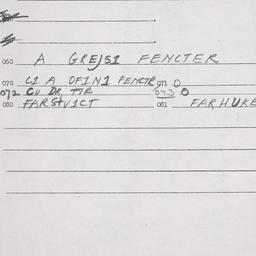 060 A GREJSI FENCTER
070 CI A DFINI FENCTR 071 O
072 CU DR TIR 073 O
080 FARSTVICT 081 FARHUKE